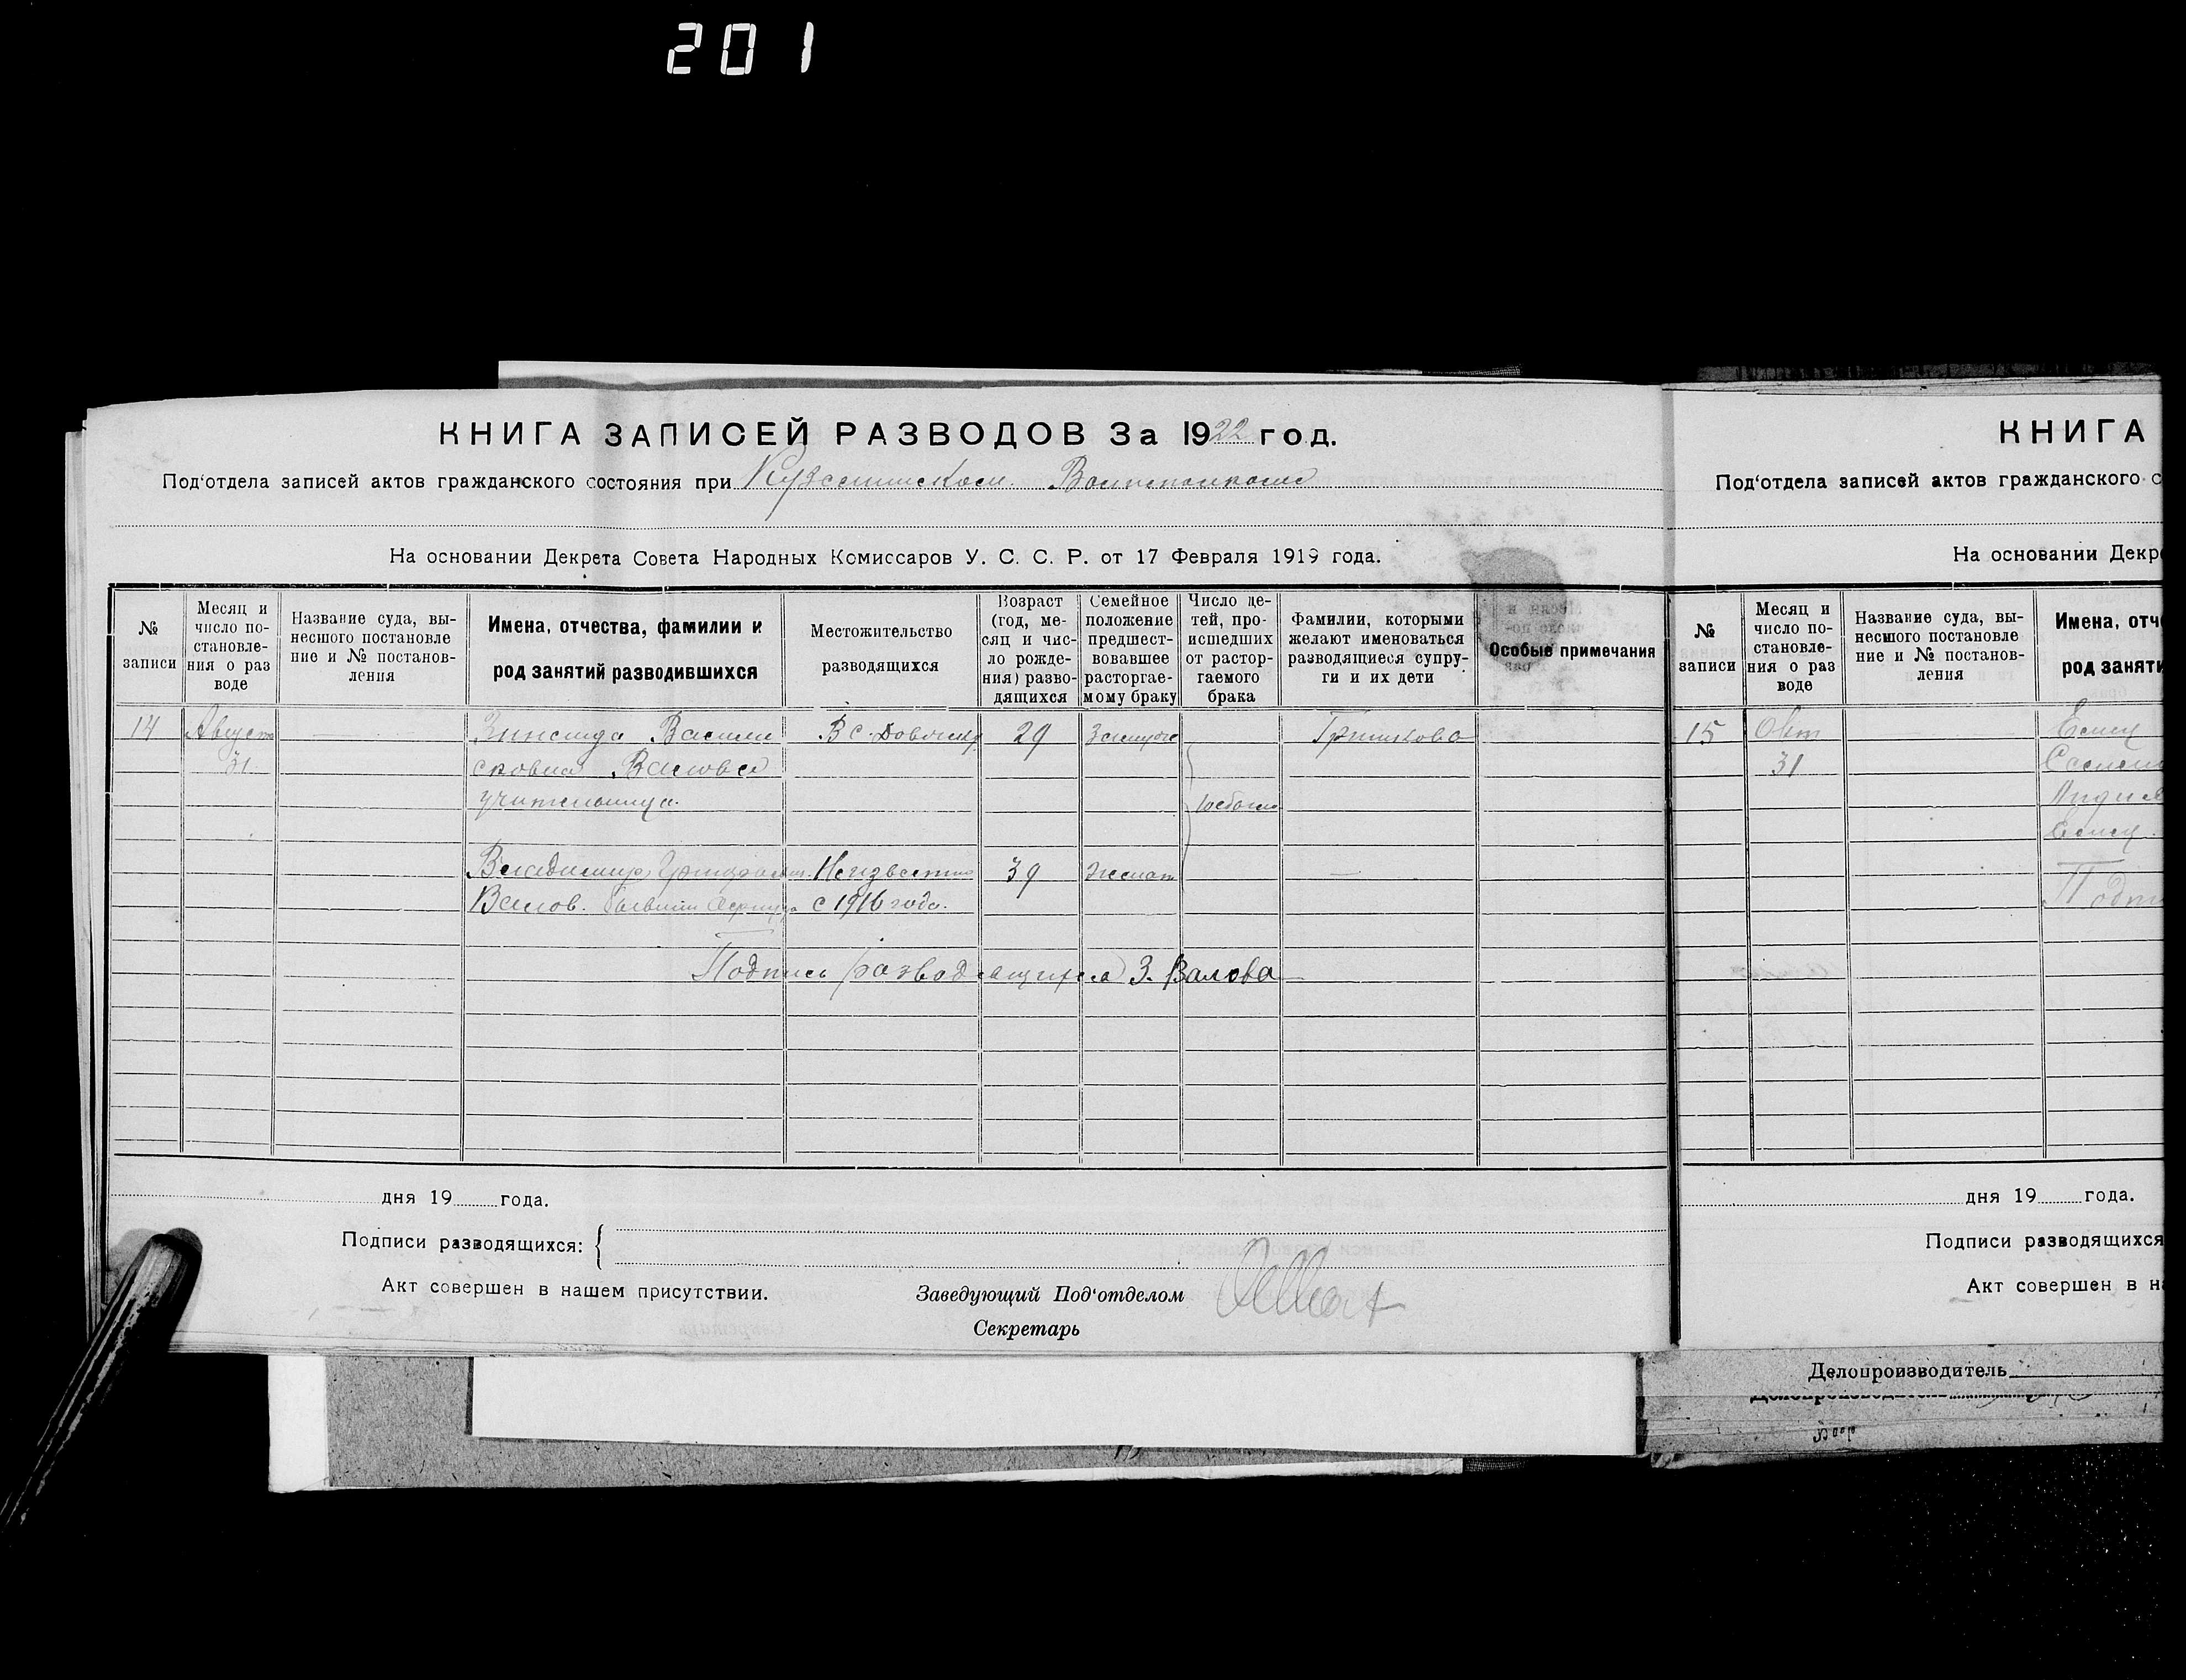 201
КНИГА ЗАПИСЕЙ РАЗВОДОВ За 1922 год.
Под'отдела записей актов гражданского состояния при
На основании Декрета Совета Народных Комиссаров У. С. С. Р. от 17 Февраля 1919 года.
№ записи
Месяц и число по-становле-ния о раз воде
Название суда, вы-несшого постановле ние и № постанов-ления
Имена, отчества, фамилии и род занятий разводившихся
Местожительство разводящихся
Возраст (год, ме-сяц и чис-ло рожде-ния) разво-дящихся
Семейное положение предшест-вовавшее расторгае-мому браку
Число де-тей, про-исшедших от растор-гаемого брака
Фамилии, которыми желают именоваться разводящиеся супру-ги и их дети
Особые примечания
14 Август Зинаида Василь 29
31 евна Валова
учительница.
Владимир Неизвестно 39 женат
Валов. бывший с 1916 года.
Подпись разводящихся З. Валова
дня 19 года.
Подписи разводящихся:
Акт совершен в нашем присутствии.
Заведующий Под'отделом
Секретарь
КНИГА
Под'отдела записей актов гражданского с
На основании Декре
№ записи
Месяц и число по-становле-ния о раз воде
Название суда, вы-несшого постановле ние и № постанов-ления
Имена, отче
род заняти
15 Окт
31
дня 19 года.
Подписи разводящихся
Акт совершен в на
Делопроизводитель